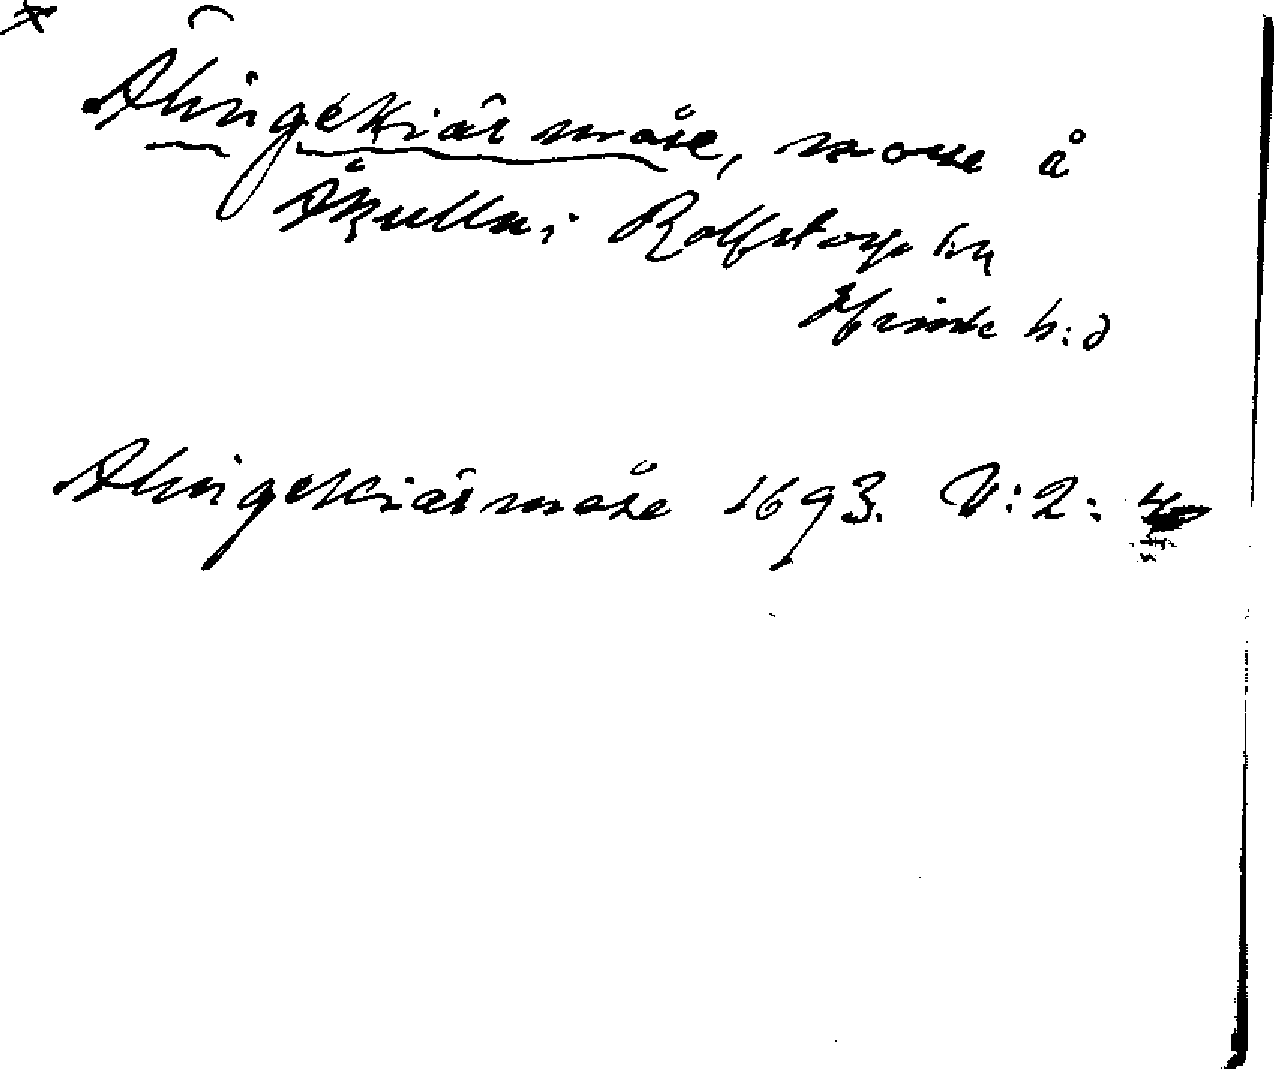 Ahngekiärmåse, mosse å
Åkulla i Rolfstorp sn
Himle h:d
Ahngekiärmåse 1693. V:2: